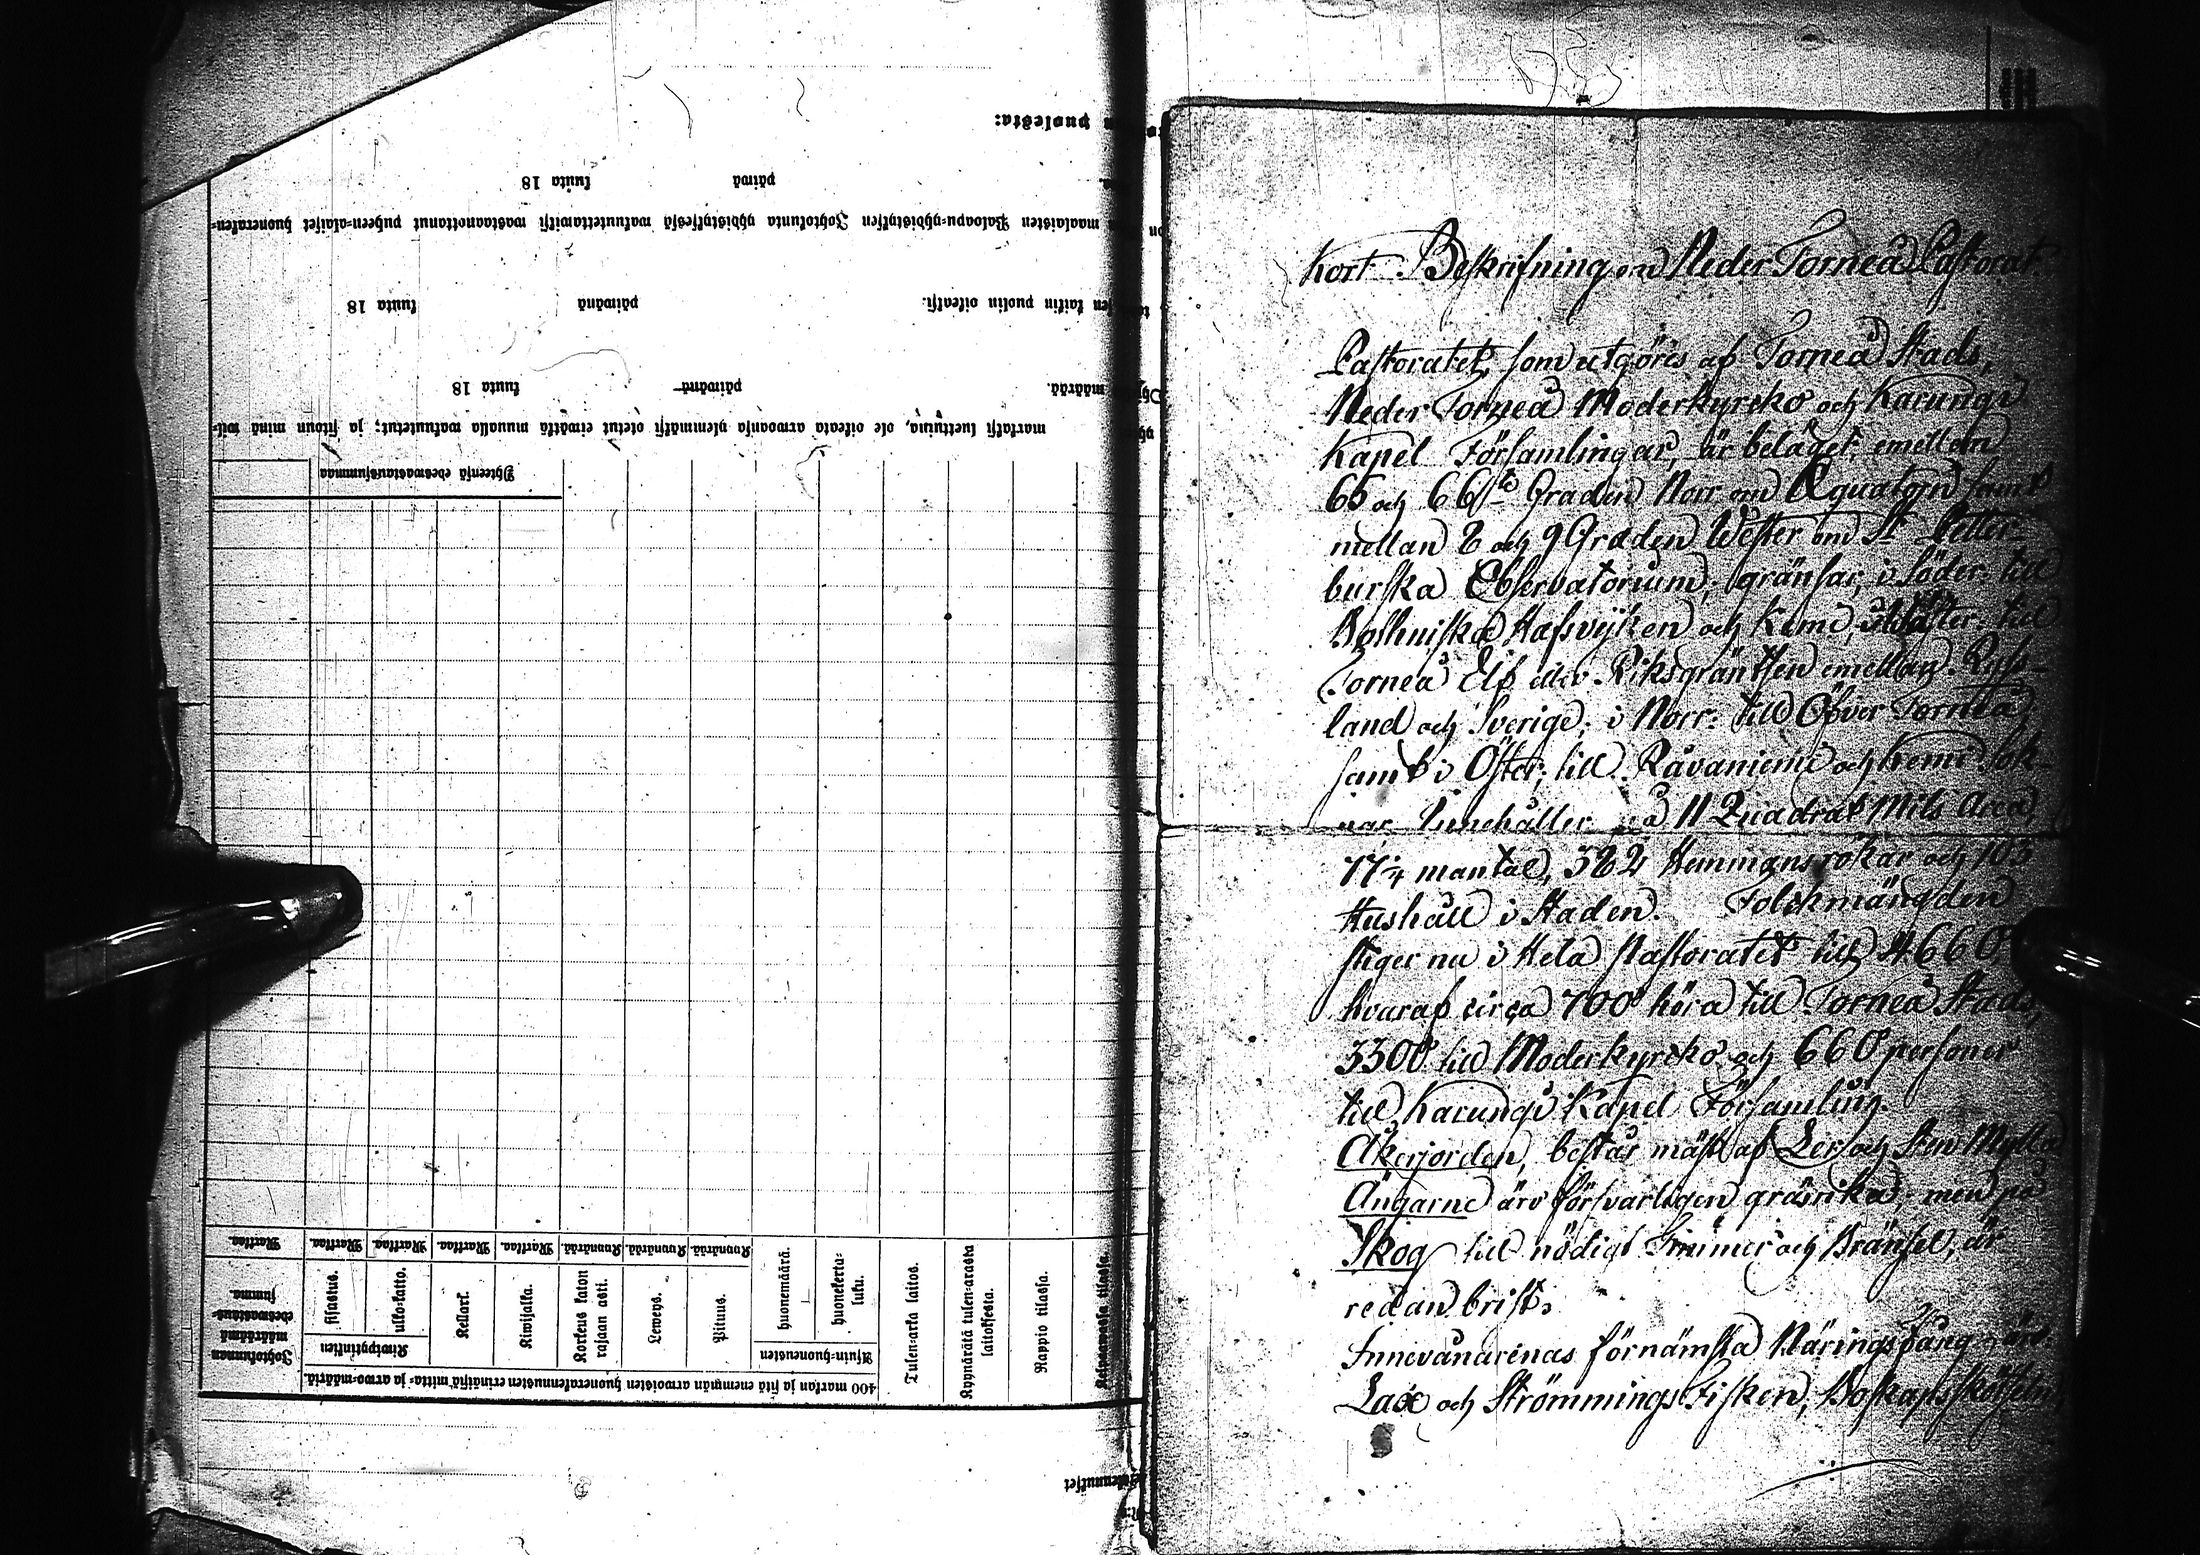 puolesta:
päiwä kuuta 18
maalaisten Paloapu-yhdistyksen Johtokunta yhdistyksessä wakuutettawiksi wastaanottanut puheen-alaiset huoneraken-
sen taitin puolin oikeaksi.
päiwänä kuuta 18
määrää.
päiwänä kuuta 18
markaksi luettuina, ole oikeata arwoansa ylemmäksi otetut eiwätkä muualla wakuutetut; ja sitoun minä wil-
Yhteensä edeswastaussumma
Markkaa. Markkaa. Markkaa. Markkaa. Markkaa. Kyynärää. Kyynärää. Kyynärää.
Johtokunnan määräämä edeswastaus-summa.
Kiwipytinkien
sisustus.
ulko-katto.
Kellari.
Kiwijalka.
Korkeus katon rajaan asti.
Leweys.
Pituus.
Asuin-huoneusten
huonemäärä.
huonekerta-luku.
Tulen-arka laitos.
Kyynärätä tulen-arasta laitoksesta.
Rappio tilassa.
Kelpaawassa tilassa.
400 markan ja sitä enemmän arwoisten huonerakennusten erinäisiä mitta- ja arwo-määriä.
Kort Beskrifning om Neder Torneå Pastorat
Pastoratet, som utgöres af Torneå Stads,
Neder Torneå Moderkyrko och Karungi
Kapel Församlingar, är beläget, emellan
65 och 66te Graden Norr om Æquatorn samt
mellan 8 och 9 Graden Wester om St Petter-
burska Observatorium, gränsar, i Söder: till
Bothniska Hafsviken och Kemi, i Wäster: till
Torneå Elf eller Riksgräntsen emellan Ryss-
land och Sverige; i Norr: till Öfver Torneå,
samt i Öster, till Råvaniemi och Kemi Sok-
nar. Innehåller på 11 Quadrat Mils Area,
77¼ mantal, 382 Hemmans rökar och 103
Hushåll i Staden. Folckmängden
stiger nu i Hela Pastoratet till 4660
hvaraf circa 700 höra till Torneå Stads,
3300 till Moderkyrko och 660 personer
till Karungi Kapel Församling.
Åkerjorden, består mäst af Ler och Sten Mylla
Ängarne äro försvarligen gräsrika, men på
Skog till nödigt Timmer och Bränsel, är
redan brist.
Innevånarenas förnämsta Näringsfång äro
Lax och Strömmings Fisken, Boskaps skötseln,